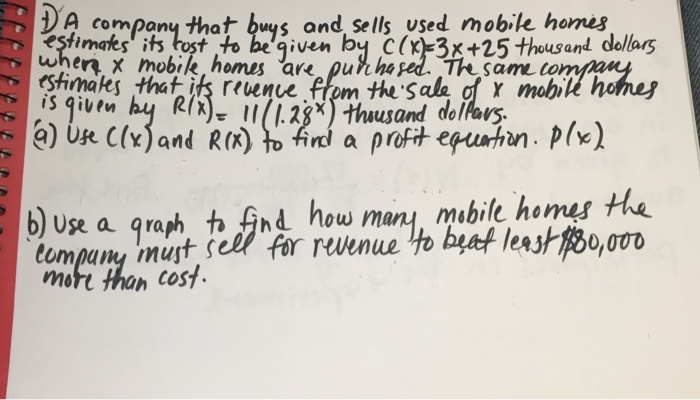 1) A company that buys and sells used mobile homes
estimates its cost to be given by C(x)=3x+25 thousand dollars
where x mobile homes are purchased. The same company
estimates that its revence from the sale of x mobile homes
is given by R(x) = 11(1.28^x) thousand dollars.
(a) Use C(x) and R(x) to find a profit equation. P(x)
b) Use a graph to find how many mobile homes the
company must sell for revenue to be at least $80,000
more than cost.